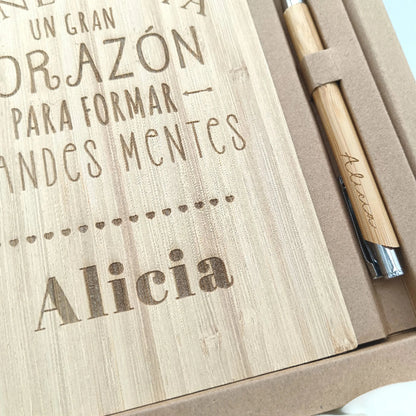 UN GRAN
ORAZÓN
PARA FORMAR
ANDES MENTES
Alicia
Alicia